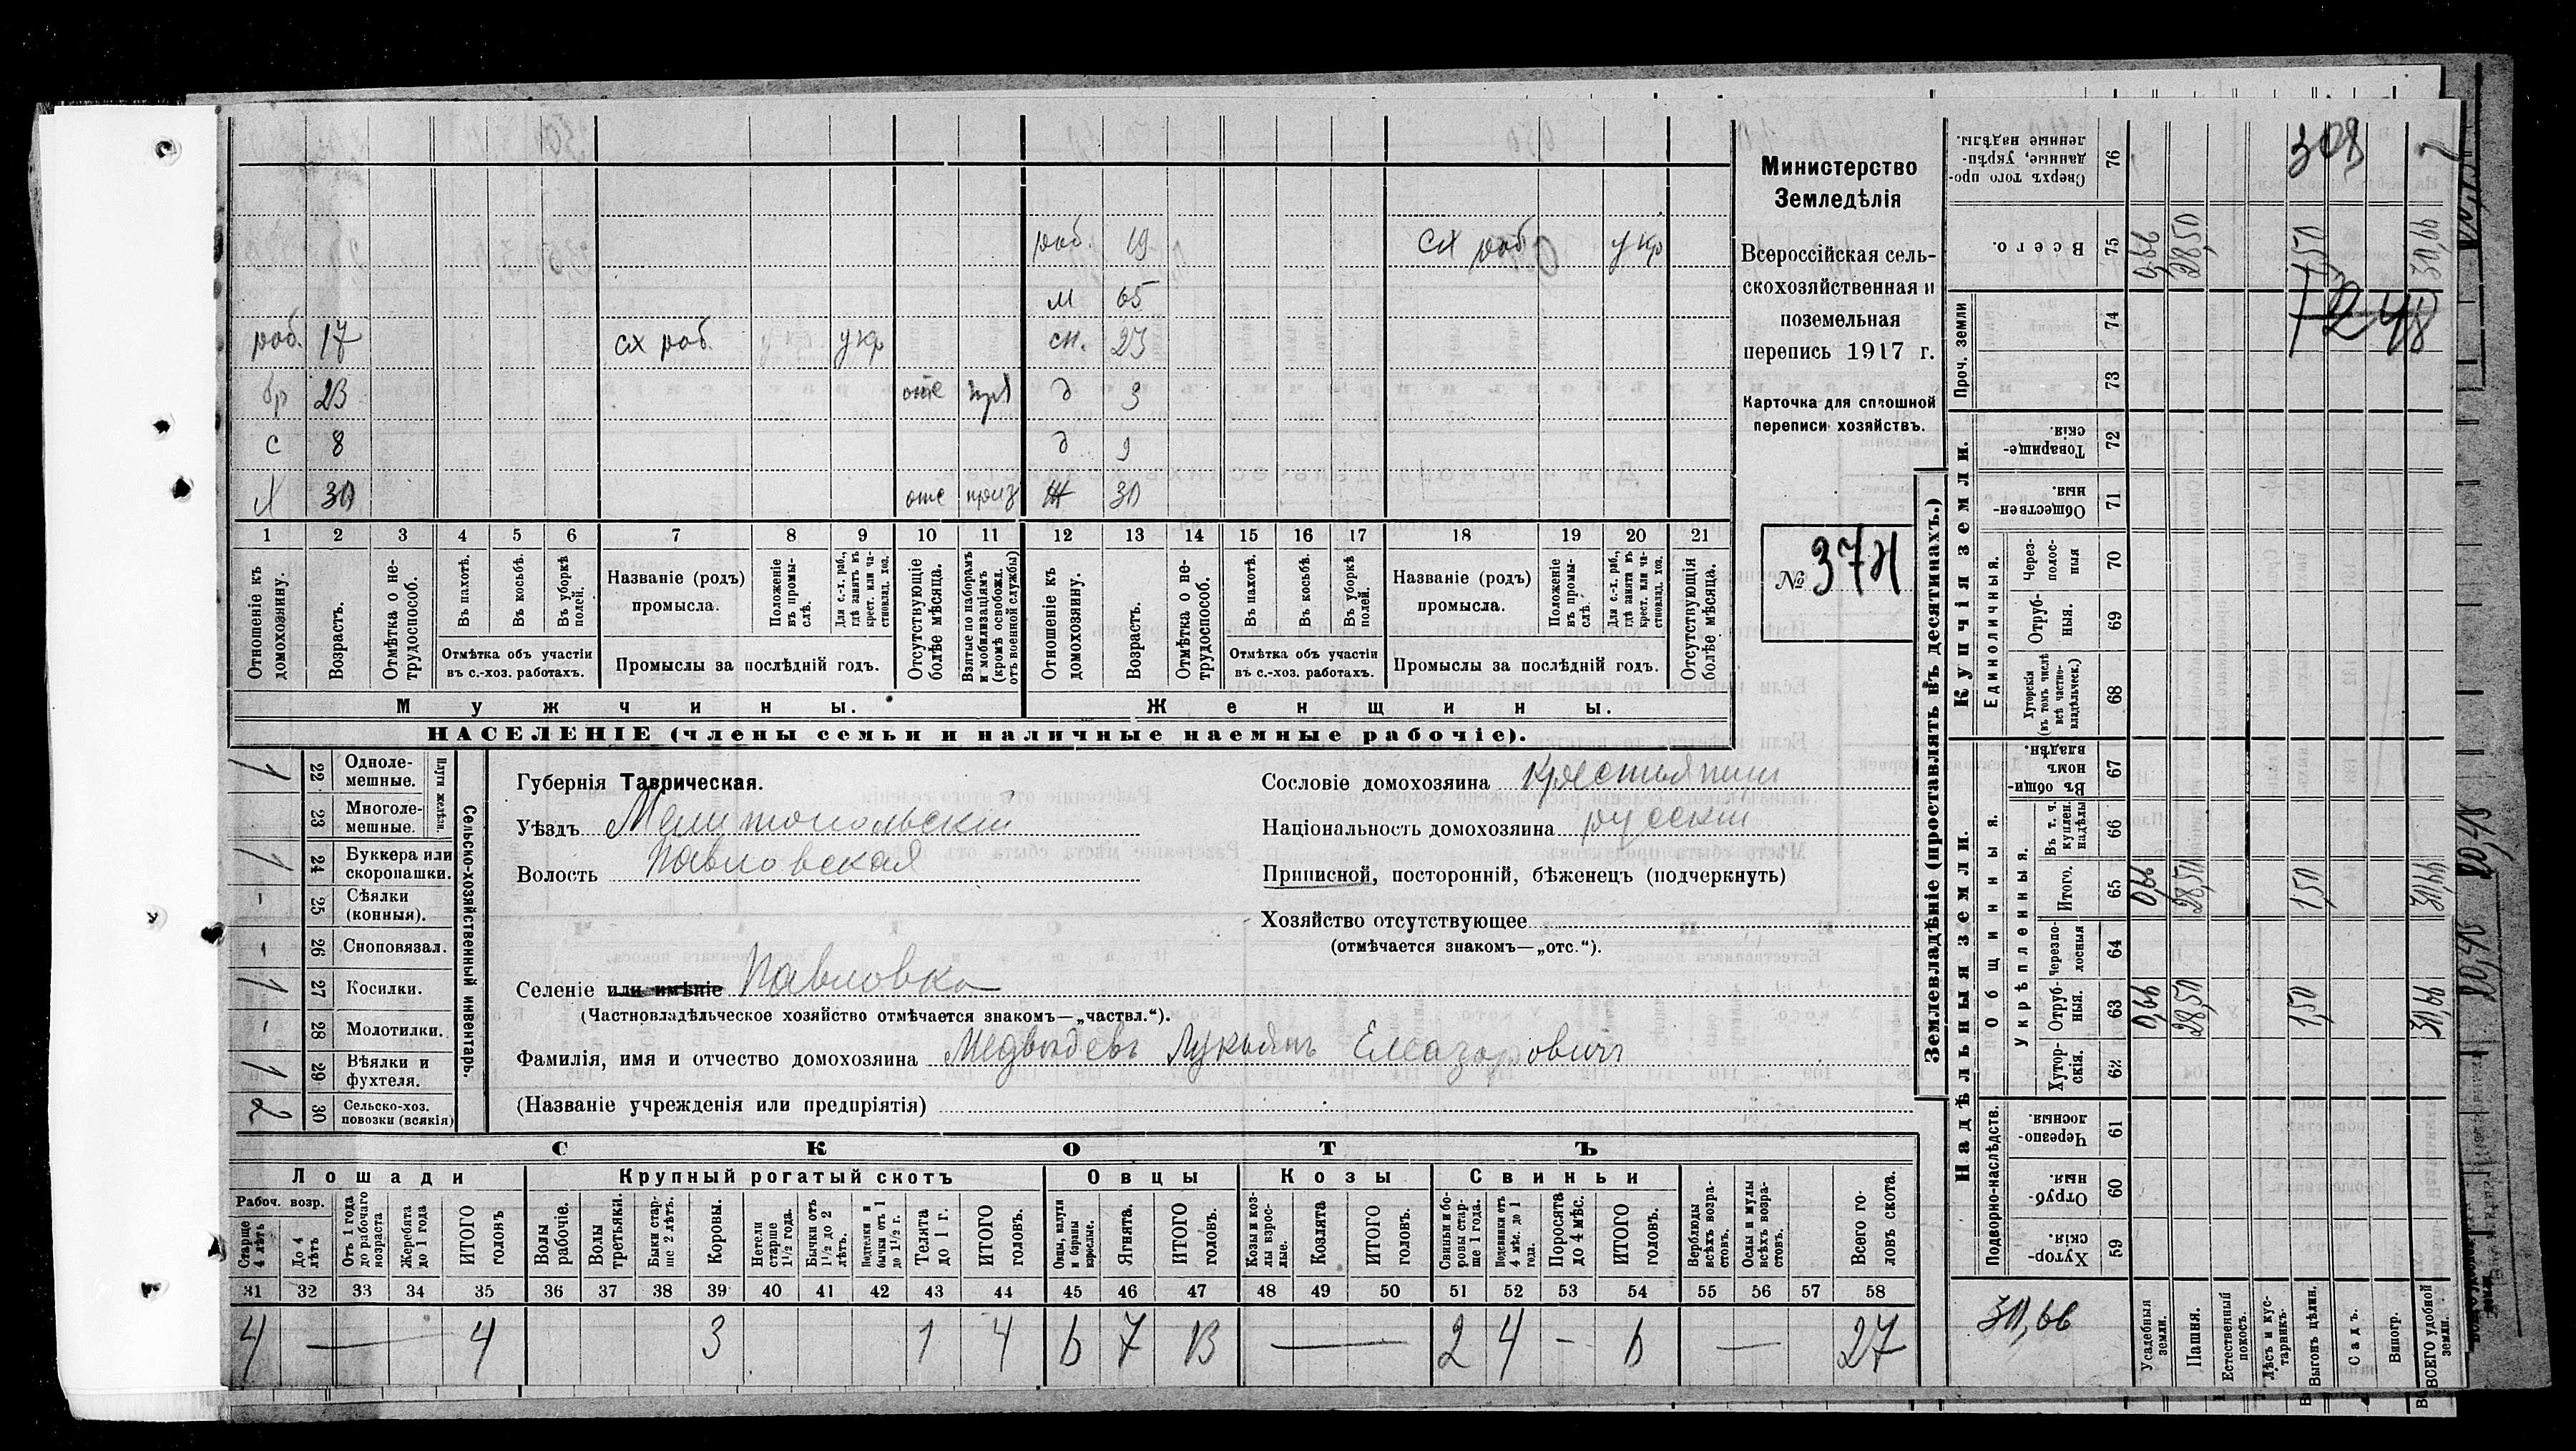 раб. 19 сх раб укр
м 65
раб. 17 сх раб. укр сн. 23
бр 23 отс д 9
с 8 д 9
30 отс приз Ж 30
1 2 3 4 5 6 7 8 9 10 11 12 13 14 15 16 17 18 19 20 21
Отношеніе къ домохозяину.
Возрастъ.
Отмѣтка о нетрудоспособ.
Въ пахотѣ.
Въ косьбѣ.
Въ уборкѣ полей.
Отмѣтка объ участіи
въ с.-хоз. работахъ.
Названіе (родъ)
промысла.
Положеніе въ промыслѣ.
Для с.-х. раб., гдѣ занятъ въ крест. или частновлад. хоз.
Промыслы за послѣдній годъ.
Отсутствующіе болѣе мѣсяца.
Взятые по наборамъ и мобилизаціямъ (кромѣ освобожд. отъ военной службы)
Отношеніе къ домохозяину.
Возрастъ.
Отмѣтка о нетрудоспособ.
Въ пахотѣ.
Въ косьбѣ.
Въ уборкѣ полей.
Отмѣтка объ участіи
въ с.-хоз. работахъ.
Названіе (родъ)
промысла.
Положеніе въ промыслѣ.
Для с.-х. раб., гдѣ занята въ крест. или частновлад. хоз.
Промыслы за послѣдній годъ.
Отсутствующія болѣе мѣсяца.
Мужчины. Женщины.
НАСЕЛЕНІЕ (члены семьи и наличные наемные рабочіе).
Министерство
Земледѣлія
Всероссійская сель-
скохозяйственная и
поземельная
перепись 1917 г.
Карточка для сплошной
переписи хозяйствъ.
№ 374
Сельско-хозяйственный инвентарь.
Плуги желѣзн.
1 22 Однолемешные.
23 Многолемешные.
1 24 Буккера или скоропашки.
- 25 Сѣялки (конныя).
- 26 Сноповязал.
1 27 Косилки.
- 28 Молотилки.
1 29 Вѣялки и фухтеля.
2 30 Сельско-хоз. повозки (всякія)
Губернія Таврическая.
Уѣздъ Мелитопольскій
Волость Павловская
Сословіе домохозяина Крестьянин
Національность домохозяина русскій
Приписной, посторонній, бѣженецъ (подчеркнуть)
Хозяйство отсутствующее
(отмѣчается знакомъ—„отс.“).
Селеніе или имѣніе Павловка
(Частновладѣльческое хозяйство отмѣчается знакомъ—„частвл.“).
Фамилія, имя и отчество домохозяина Медвѣдевъ Лукьянъ Елеазаровичъ
(Названіе учрежденія или предпріятія)
СКОТЪ
Лошади Крупный рогатый скотъ Овцы Козы Свиньи
Рабоч. возр.
Старше 4 лѣтъ
До 4 лѣтъ
Отъ 1 года до рабочаго возраста
Жеребята до 1 года
ИТОГО головъ
Волы рабочіе.
Волы третьяки.
Быки старше 2 лѣтъ.
Коровы.
Нетели старше 1½ года.
Бычки отъ 1½ до 2 лѣтъ.
Подтелки и бычки отъ 1 до 1½ г.
Телята до 1 г.
ИТОГО головъ.
Овцы, валухи и бараны взрослые.
Ягнята.
ИТОГО головъ.
Козы и козлы взрослые.
Козлята
ИТОГО головъ.
Свиньи и боровы старше 1 года.
Подсвинки отъ 4 мѣс. до 1 года.
Поросята до 4 мѣс.
ИТОГО головъ.
Верблюды всѣхъ возрастовъ.
Ослы и мулы всѣхъ возрастовъ.
Всего головъ скота.
31 32 33 34 35 36 37 38 39 40 41 42 43 44 45 46 47 48 49 50 51 52 53 54 55 56 57 58
4 — 4 3 1 4 6 7 13 — 2 4 - 6 — 27
Землевладѣніе (проставлять въ десятинахъ.)
Купчія земли.
Надѣльныя земли.
76 Сверхъ того проданные, укрѣпленные надѣлы.
308
75 Всего.
0,66 28,50 1,50 30,66
Проч. земли
74
73
72 Товарищескія.
71 Общественныя.
Единоличныя.
70 Черезполосныя
69 Отрубныя.
68 Хуторскія (въ томъ числѣ всѣ частновладѣльческ.)
67 Въ общинномъ владѣн.
Общинныя.
Укрѣпленныя.
66 Въ т. ч. куплен. надѣлы
65 Итого.
0,66 28,50 1,50 30,66
64 Черезполосныя
63 Отрубныя.
0,66 28,50 1,50 30,66
62 Хуторскія.
Подворно-наслѣдств.
61 Черезполосныя
60 Отрубныя.
59 Хуторскія.
30,66
Усадебныя земли.
Пашня.
Естественный покосъ.
Лѣсъ и кустарникъ.
Выгонъ цѣлин.
Садъ.
Виногр.
ВСЕГО удобной земли.